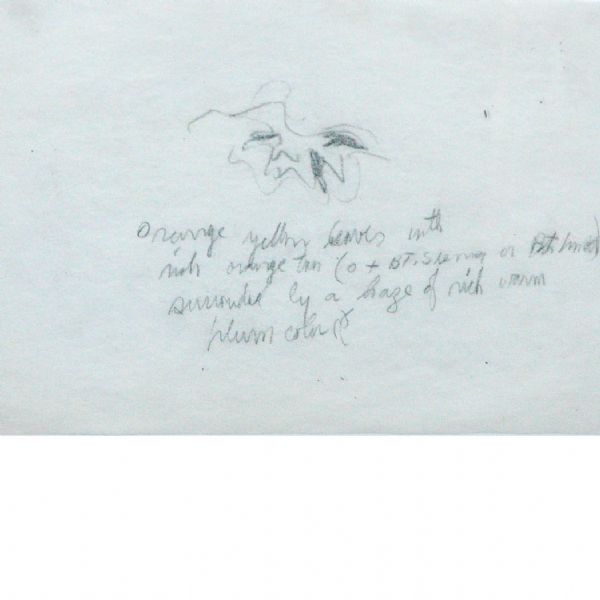 Orange yellow leaves with
rich orange tan (O + BT. Sienna or
surrounded by a haze of rich warm
plum color